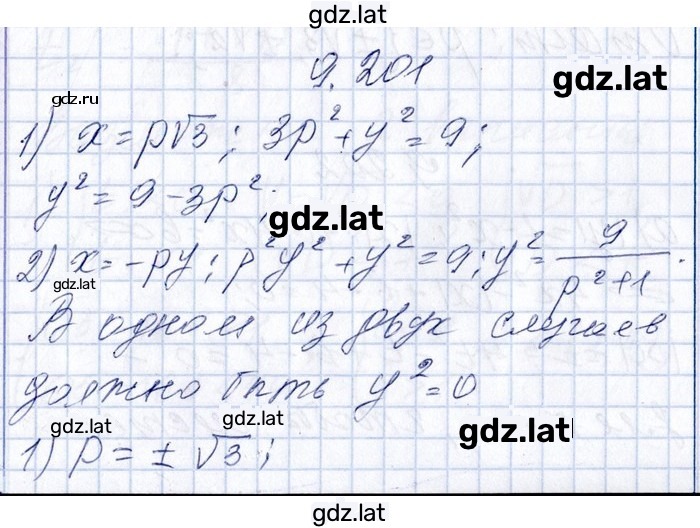 gdz.lat
9.201
gdz.lat
gdz.ru
1) x = p√3; 3p² + y² = 9;
y² = 9 - 3p²;
gdz.lat
2) x = -py; p²y² + y² = 9; y² = 9/(p²+1).
gdz.lat
В одном из двух случаев
должно быть y² = 0
gdz.lat
gdz.lat
gdz.lat
1) p = ± √3;
gdz.lat